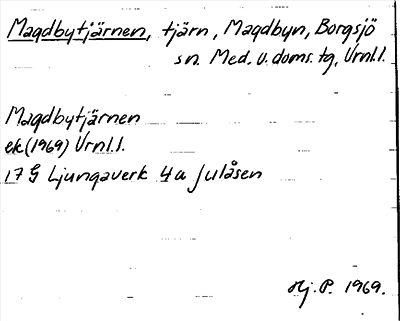 Magdbytjärnen, tjärn, Magdbyn, Borgsjö
sn. Med. v. doms. tg, Vrnl.l.
Magdbytjärnen
ek (1969) Vrnl.l.
17 G Ljungaverk 4a Julåsen
Hj. P. 1969.